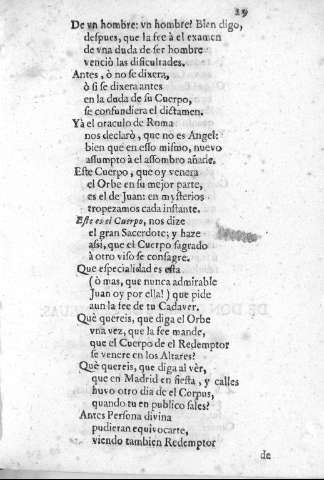 19
De vn hombre: vn hombre? Bien digo,
despues, que la fee à el examen
de vna duda de ser hombre
venciò las dificultades.
Antes, ò no se dixera,
ò si se dixera antes
en la duda de su Cuerpo,
se confundiera el dictamen.
Yà el oraculo de Roma
nos declarò, que no es Angel:
bien que en esso mismo, nuevo
assumpto à el assombro añade.
Este Cuerpo, que oy venera
el Orbe en su mejor parte,
es el de Juan: en mysterios
tropezamos cada instante.
Este es el Cuerpo, nos dize
el gran Sacerdote; y haze
assi, que el Cuerpo sagrado
à otro viso se consagre.
Que especialidad es esta
(ò mas, que nunca admirable
Juan oy por ella!) que pide
aun la fee de tu Cadaver.
Què quereis, que diga el Orbe
vna vez, que la fee mande,
que el Cuerpo de el Redemptor
se venere en los Altares?
Què quereis, que diga al vèr,
que en Madrid en fiesta, y calles
huvo otro dia de el Corpus,
quando tu en publico sales?
Antes Persona divina
pudieran equivocarte,
viendo tambien Redemptor
de